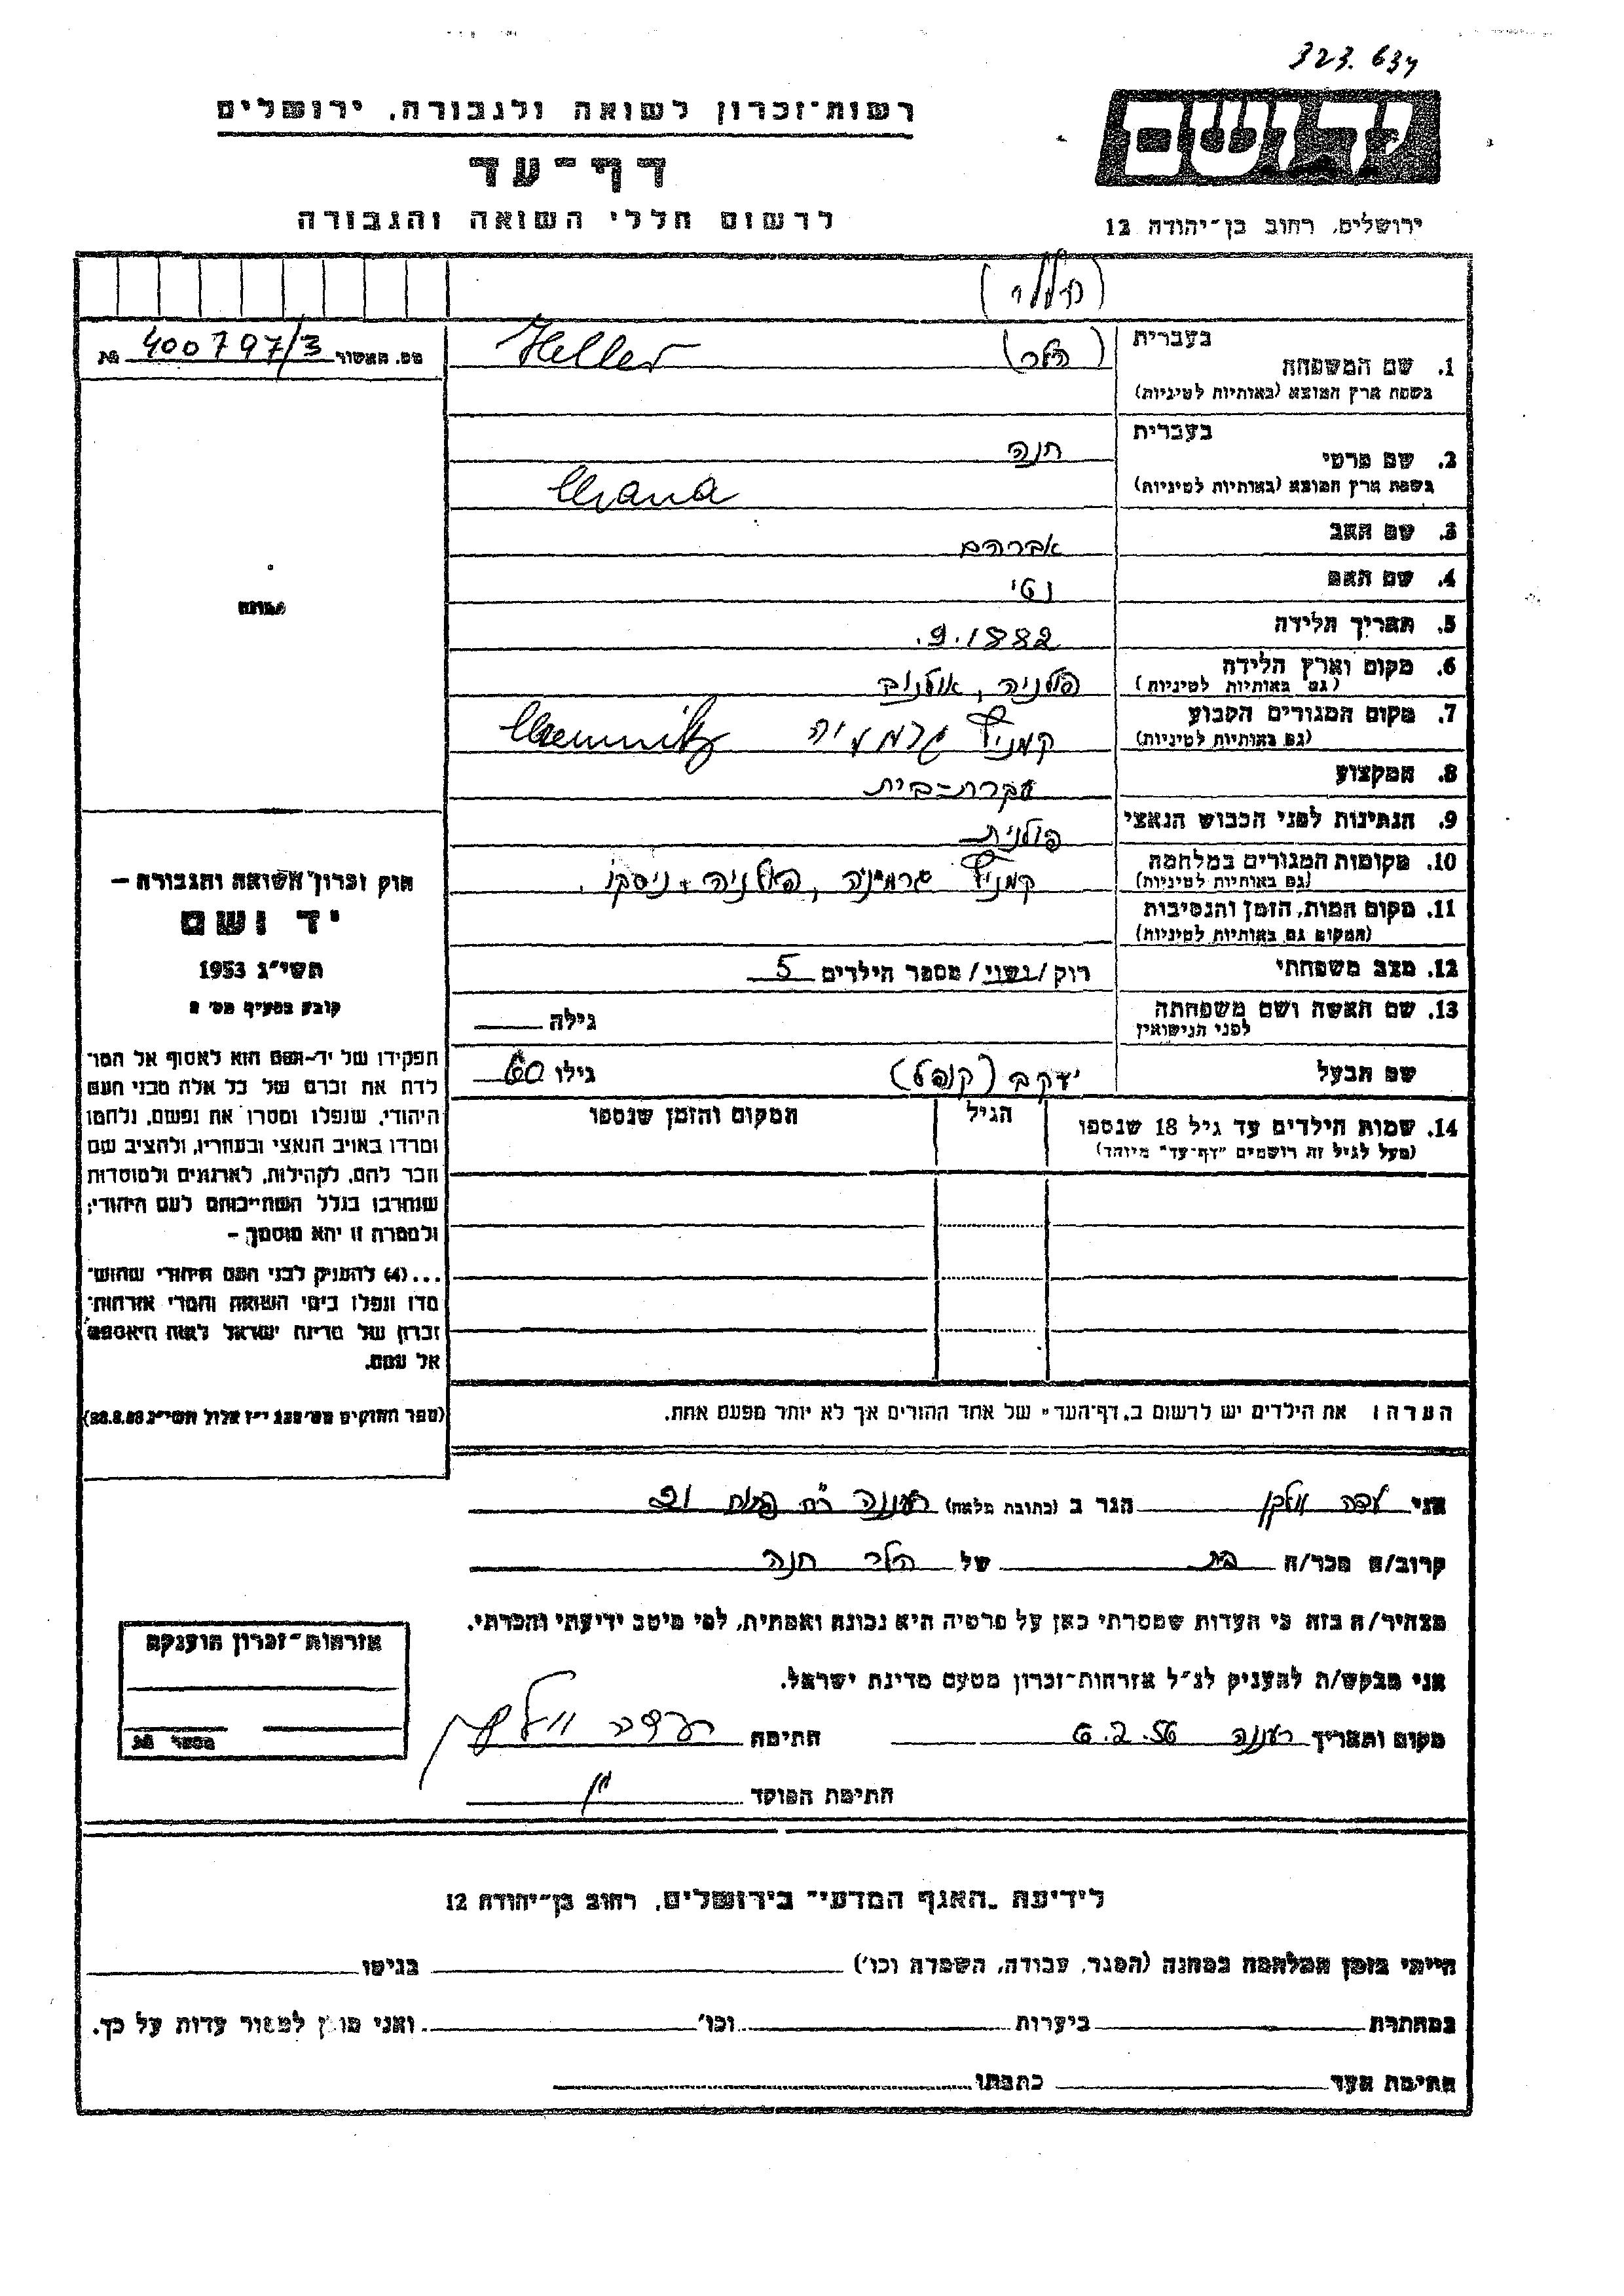 323.634
ידושם
ירושלים, רחוב בן־יהודה 12
רשות־זכרון לשואה ולגבורה, ירושלים
דף־עד
לרשום חללי השואה והגבורה
מס. האשור 400797/3 מת
בעברית
1. שם המשפחה (הלר) Heller
בשפת ארץ המוצא (באותיות לטיניות)
בעברית
2. שם פרטי חנה
בשפת ארץ המוצא (באותיות לטיניות) Chana
3. שם האב אברהם
4. שם האם נטי
5. תאריך הלידה 9.1882.
6. מקום וארץ הלידה פולניה, אולנוב
(גם באותיות לטיניות)
7. מקום המגורים הקבוע קמניץ גרמניה Chemnitz
(גם באותיות לטיניות)
8. המקצוע עקרת-בית
9. הנתינות לפני הכבוש הנאצי פולנית
10. מקומות המגורים במלחמה קמניץ גרמניה, פולניה - ניסקו.
(גם באותיות לטיניות)
11. מקום המות, הזמן והנסיבות
(המקום גם באותיות לטיניות)
12. מצב משפחתי רוק/נשוי/ מספר הילדים 5
13. שם האשה ושם משפחתה גילה
לפני הנישואין
שם הבעל יעקב (קופל) גילו 60
14. שמות הילדים עד גיל 18 שנספו הגיל המקום והזמן שנספו
(מעל לגיל זה רושמים "דף־עד" מיוחד)
הערה: את הילדים יש לרשום ב"דף־העד" של אחד ההורים אך לא יותר מפעם אחת.
תמונה
חוק זכרון השואה והגבורה –
יד ושם
תשי"ג 1953
קובע בסעיף מס' 2
תפקידו של יד־ושם הוא לאסוף אל המו־
לדת את זכרם של כל אלה מבני העם
היהודי, שנפלו ומסרו את נפשם, נלחמו
ומרדו באויב הנאצי ובעוזריו, ולהציב שם
וזכר להם, לקהילות, לארגונים ולמוסדות
שנחרבו בגלל השתייכותם לעם היהודי;
ולמטרה זו יהא מוסמך –
...(4) להעניק לבני העם היהודי שהוש־
מדו ונפלו בימי השואה והמרי אזרחות־
זכרון של מדינת ישראל לאות היאספם
אל עמם.
אני הגר ב (כתובת מלאה) רעננה רח'
קרוב/ה מכר/ה בת של הלר חנה
מצהיר/ה בזה כי העדות שמסרתי כאן על פרטיה היא נכונה ואמתית, לפי מיטב ידיעתי והכרתי.
אני מבקש/ת להעניק לנ"ל אזרחות־זכרון מטעם מדינת ישראל.
מקום ותאריך רעננה 6.2.56 חתימה
חתימת הפוקד
אזרחות־זכרון הוענקה
מספר מת
לידיעת "האגף המדעי" בירושלים, רחוב בן־יהודה 12
הייתי בזמן המלחמה במחנה (הסגר, עבודה, השמדה וכו') בגיטו
במחתרת ביערות וכו' ואני מוכן למסור עדות על כך.
חתימת העד כתבתו